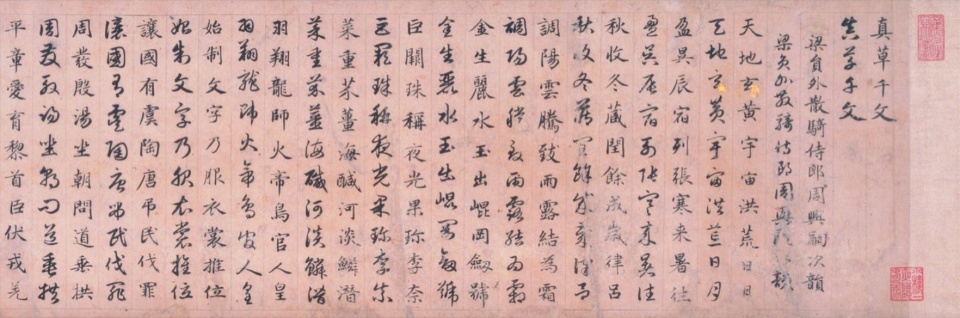 真草千文
真草千文
梁員外散騎侍郎周興嗣次韻
梁員外散騎侍郎周興嗣次韻
天地玄黃宇宙洪荒日月
天地玄黃宇宙洪荒日月
盈昃辰宿列張寒来暑往
盈昃辰宿列張寒来暑往
秋收冬藏閏餘成歲律吕
秋收冬藏閏餘成歲律吕
調陽雲騰致雨露結為霜
調陽雲騰致雨露結為霜
金生麗水玉出崐岡劒號
金生麗水玉出崐岡劒號
巨闕珠稱夜光果珍李柰
巨闕珠稱夜光果珍李柰
菜重芥薑海醎河淡鱗潛
菜重芥薑海醎河淡鱗潛
羽翔龍師火帝鳥官人皇
羽翔龍師火帝鳥官人皇
始制文字乃服衣裳推位
始制文字乃服衣裳推位
讓國有虞陶唐弔民伐罪
讓國有虞陶唐弔民伐罪
周發殷湯坐朝問道垂拱
周發殷湯坐朝問道垂拱
平章愛育黎首臣伏戎羌